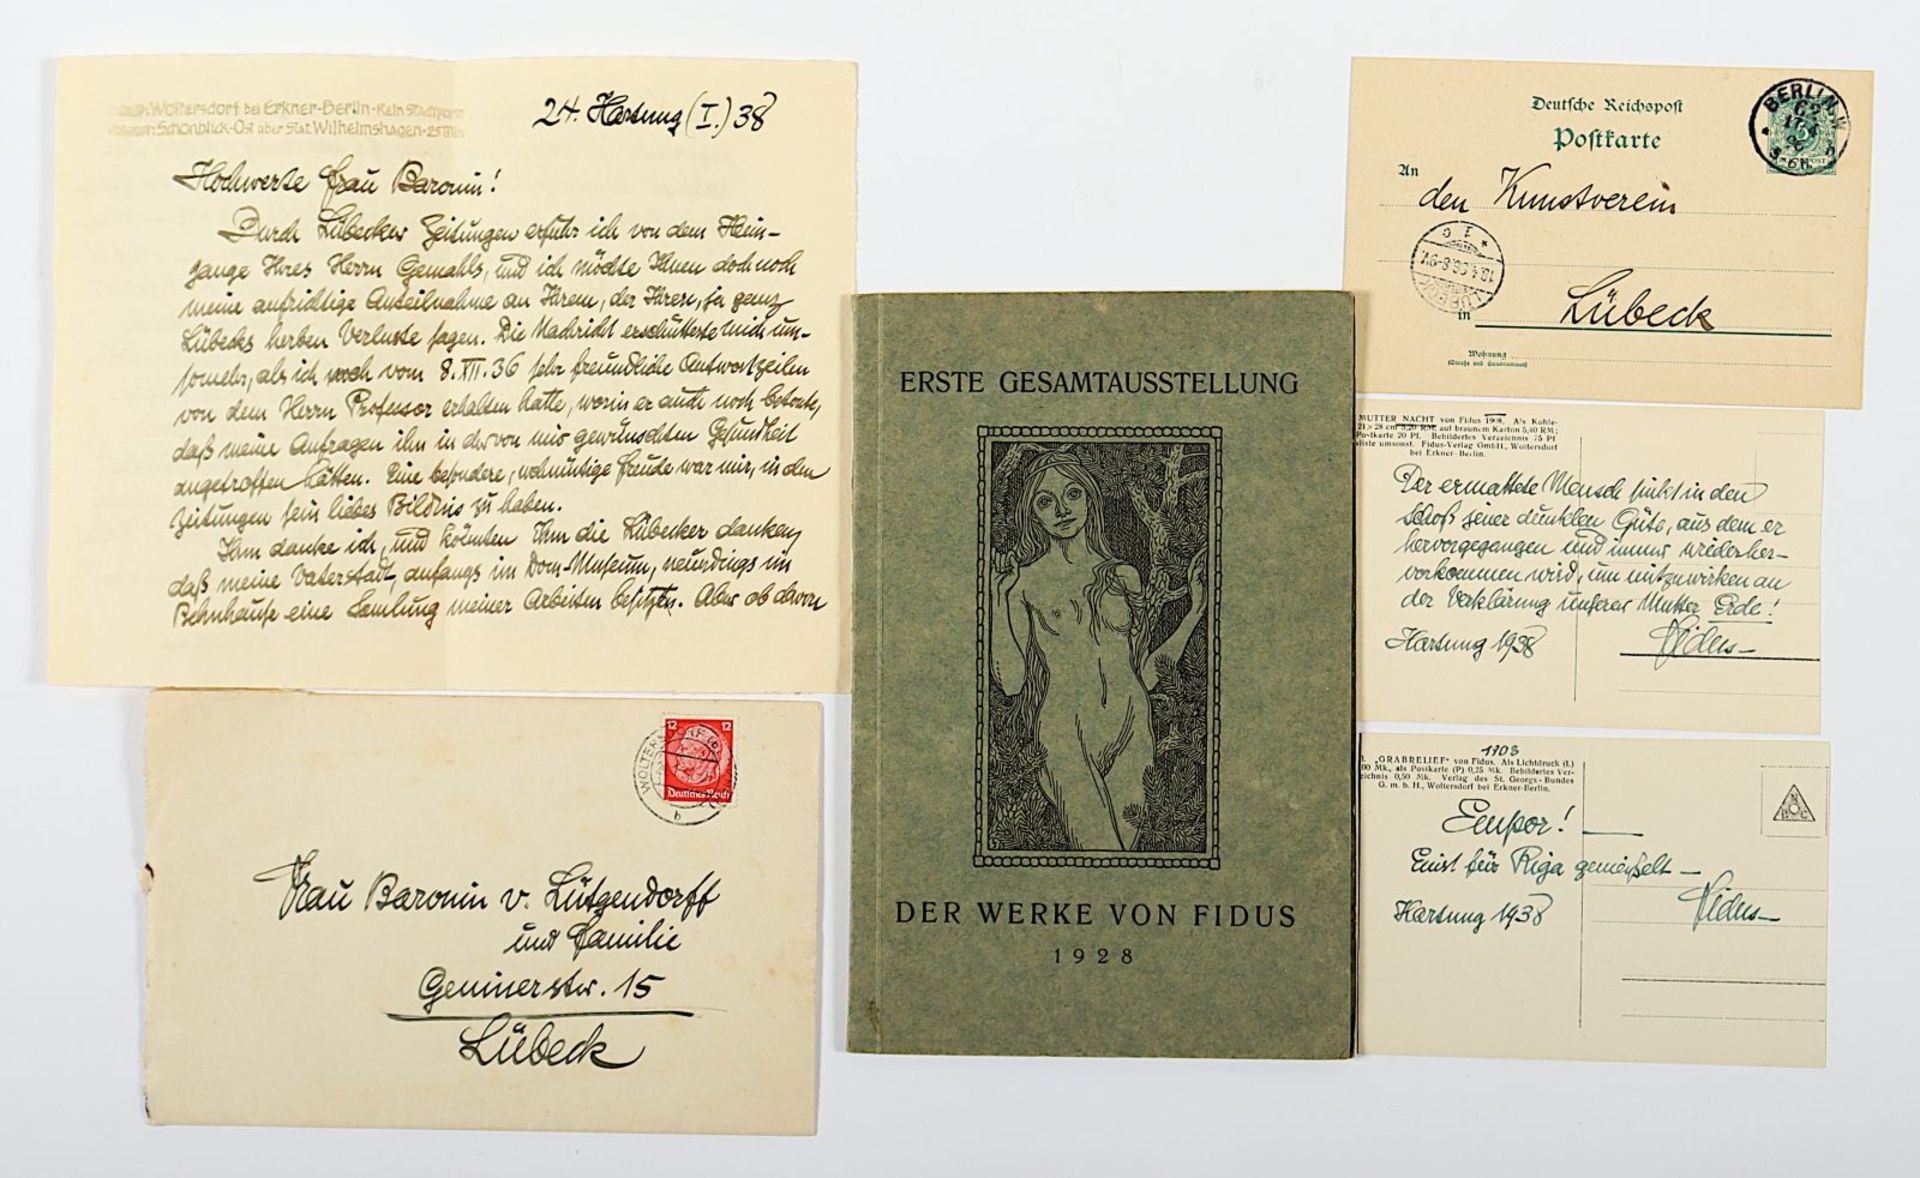 Woltersdorf bei Erkner-Berlin · Kein
Schönblick-Ost über Stat. Wilhelmshagen · 25 Min
24. Hartung (I.) 38
Hochwerte Frau Baronin!
Durch Lübecker Zeitungen erfuhr ich von dem Heim-
gange Ihres Herrn Gemahls, und ich möchte Ihnen doch noch
meine aufrichtige Anteilnahme an Ihrem, der Ihren, ja ganz
Lübecks herben Verluste sagen. Die Nachricht erschütterte mich um-
somehr, als ich noch vom 8. XII. 36 sehr freundliche Antwortzeilen
von dem Herrn Professor erhalten hatte, worin er auch noch betonte,
daß meine Anfragen ihn in der von mir gewünschten Gesundheit
angetroffen hätten. Eine besondere, wehmütige Freude war mir, in den
Zeitungen sein liebes Bildnis zu haben.
Ihm danke ich, und könnten Ihm die Lübecker danken,
daß meine Vaterstadt, anfangs im Dom-Museum, neuerdings im
Behnhause eine Samlung meiner Arbeiten besitzen. Aber ob davon
12 12
Deutsches Reich
b
Frau Baronin v. Lütgendorff
und Familie
Geninerstr. 15
Lübeck
ERSTE GESAMTAUSSTELLUNG
DER WERKE VON FIDUS
1928
Deutsche Reichspost
Postkarte
BERLIN
An
den Kunstverein
LÜBECK
in Lübeck
Wohnung
(Straße und Hausnummer)
MUTTER NACHT von Fidus 1908. Als Kohle-
21 × 28 cm 3,20 RM, auf braunem Karton 5,40 RM;
Postkarte 20 Pf. Bebildertes Verzeichnis 75 Pf
liste umsonst. Fidus-Verlag GmbH., Woltersdorf
bei Erkner-Berlin.
Der ermattete Mensch sinkt in den
Schoß jener dunklen Güte, aus dem er
hervorgegangen und immer wieder her-
vorkommen wird, um mitzuwirken an
der Verklärung unserer Mutter Erde!
Hartung 1938 Fidus
1908
„GRABRELIEF" von Fidus. Als Lichtdruck (l.)
00 Mk., als Postkarte (P) 0,25 Mk. Bebildertes Ver-
zeichnis 0,50 Mk. Verlag des St. Georgs-Bundes
G. m. b. H., Woltersdorf bei Erkner-Berlin.
Empor!
Einst für Riga gemeißelt
Hartung 1938 Fidus